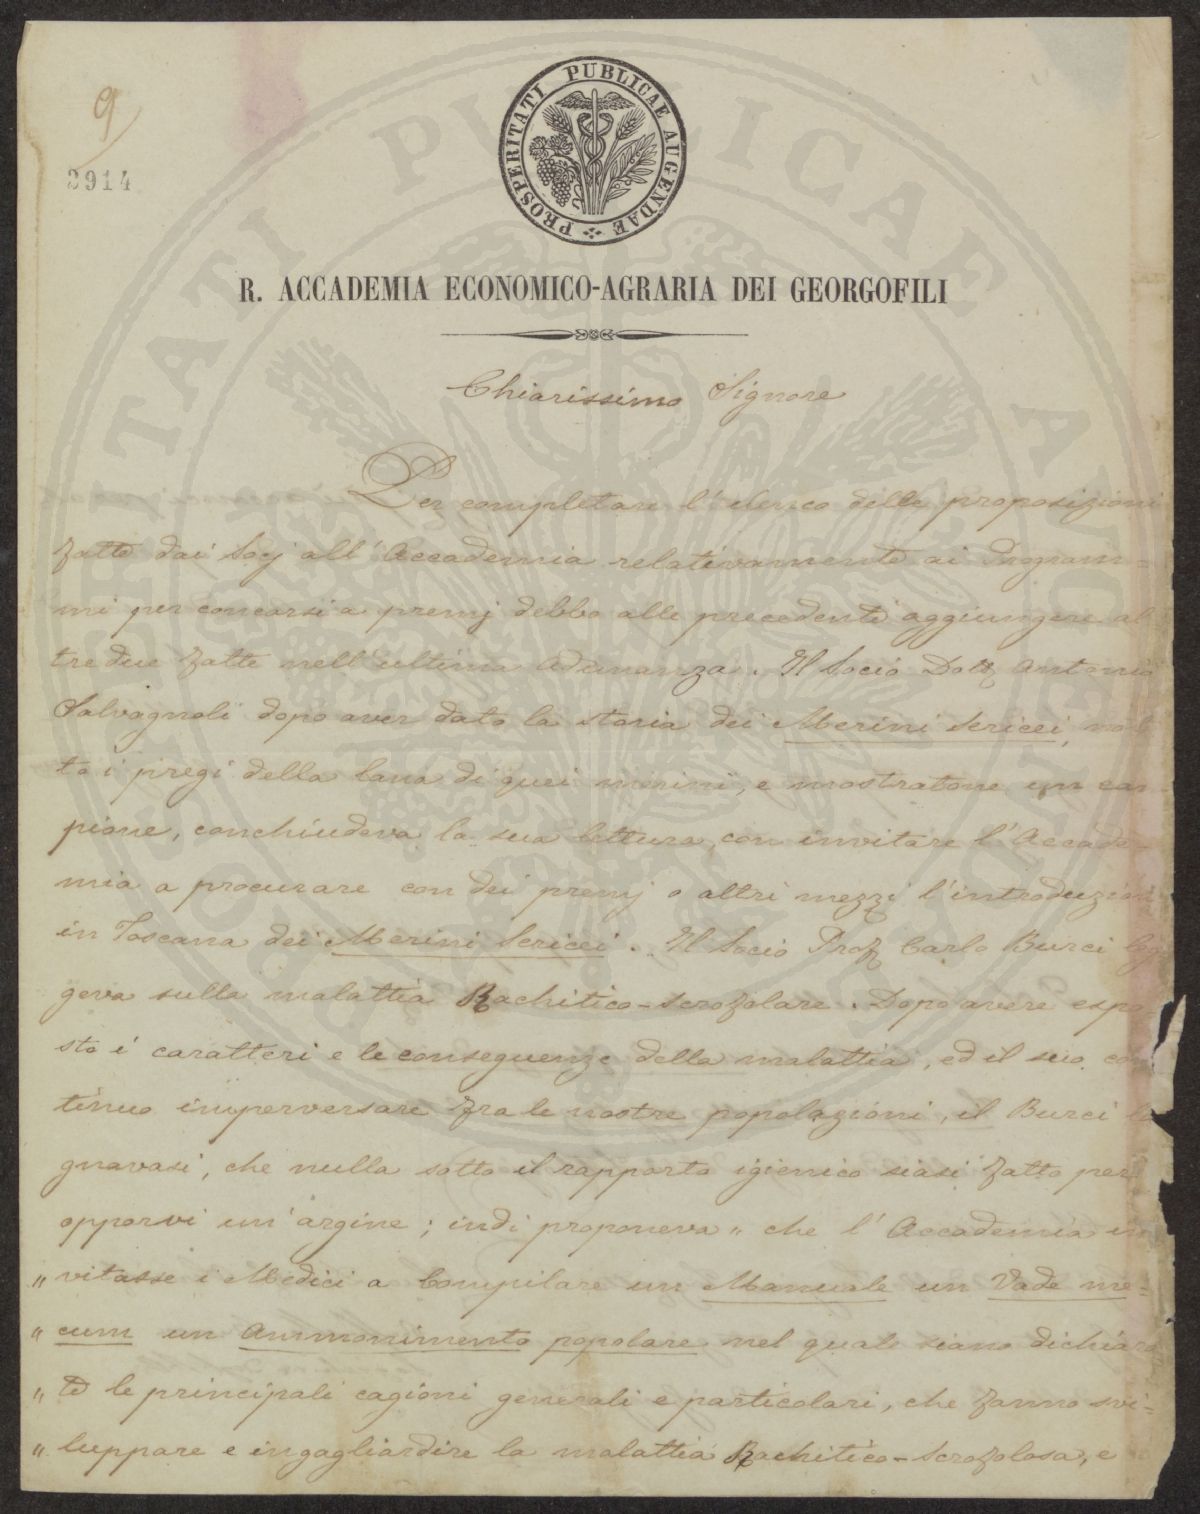 9
2914
PROSPERITATI PUBLICAE AUGENDAE
R. ACCADEMIA ECONOMICO-AGRARIA DEI GEORGOFILI
Chiarissimo Signore
Per completare l'elenco delle proposizioni
fatte dai Socj all'Accademia relativamente ai Program-
mi per concorsi a premj debbo alle precedenti aggiungere al
tre due fatte nell'ultima adunanza. Il Socio Dott Antonio
Salvagnoli dopo aver dato la storia dei Merini Sericei, no
to i pregi della lana di quei merini, e mostratone un cam
pione, conchiudeva la sua lettura, con invitare l'Accade-
mia a procurare con dei premj o altri mezzi l'introduzione
in Toscana dei Merini Sericei. Il Socio Prof Carlo Burci leg
geva sulla malattia Rachitico-scrofolare. Dopo avere espo
sto i caratteri e le conseguenze della malattia, ed il suo con
tinuo imperversare fra le nostre popolazioni, il Burci la
gnavasi, che nulla sotto il rapporto igienico siasi fatto per
opporvi un'argine; indi proponeva „ che l'Accademia in
„ vitasse i Medici a Compilare un Manuale un Vade me-
„ cum un Ammonimento popolare nel quale siano dichiara
„ te le principali cagioni generali e particolari, che fanno svi-
„ luppare e ingagliardire la malattia Rachitico-scrofolosa, e
PROSPERITATI PUBLICAE AUGENDAE